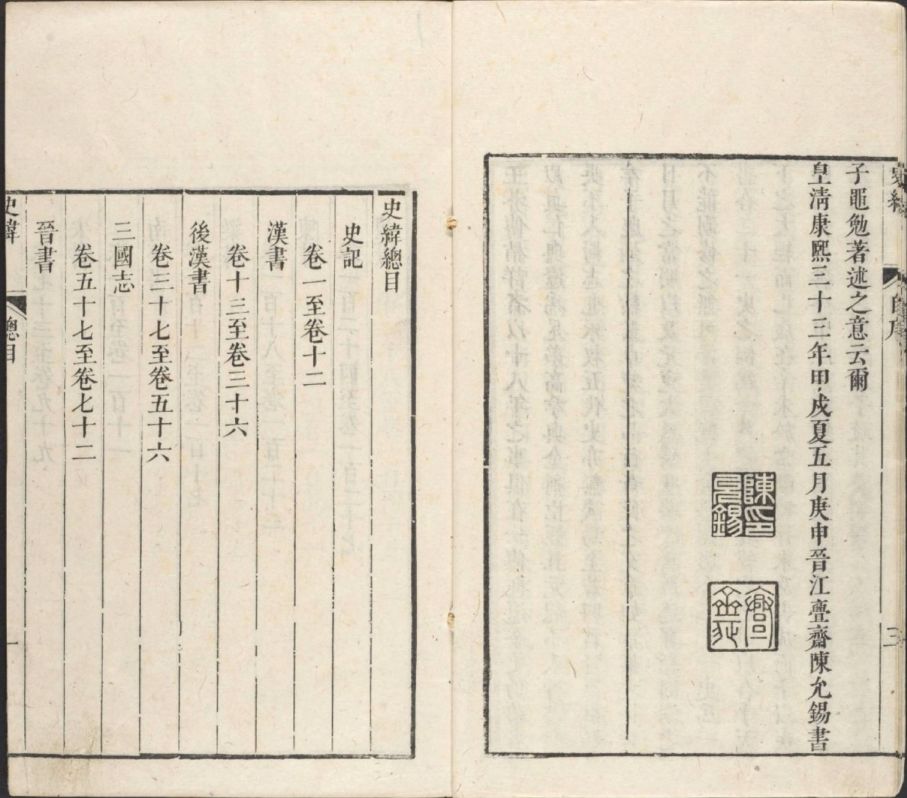 子黽勉著述之意云爾
皇淸康熙三十三年甲戌夏五月庚申晉江亹齋陳允錫書
陳印允錫
亹齋
史緯
自序
三
史緯總目
史記
卷一至卷十二
漢書
卷十三至卷三十六
後漢書
卷三十七至卷五十六
三國志
卷五十七至卷七十二
晉書
史緯
總目
一